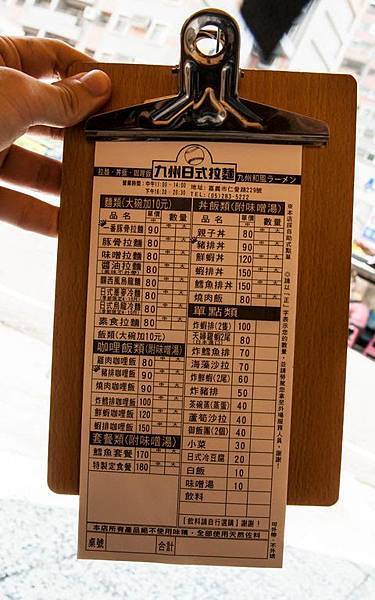 九州日式拉麵
拉麵・丼飯・咖哩飯
九州和風ラーメン
營業時間:中午11:00-14:00
下午16:30-20:30
地址:嘉義市仁愛路229號
TEL:(05)783-5222
麵類(大碗加10元)
品名 單價 數量
豚骨拉麵 80
味噌拉麵 80
醬油拉麵 80
素食拉麵 80
飯類(大碗加10元)
咖哩飯類(附味噌湯)
雞肉咖哩飯 80
豬排咖哩飯 90
燒肉咖哩飯 90
炸鱈排咖哩飯 100
鮮蝦咖哩飯 120
蝦排咖哩飯 150
套餐類(附味噌湯)
鱈魚套餐 170
特製定食餐 180
丼飯類(附味噌湯)
品名 單價 數量
親子丼 80
豬排丼 90
鮮蝦丼 120
蝦排丼 150
鱈魚排丼 150
燒肉飯 80
單點類
炸蝦排(2隻) 100
炸鱈魚排 70
海藻沙拉 70
炸鮮蝦(2尾) 60
炸豬排 50
茶碗蒸(蒸蛋) 40
蘆筍沙拉 40
御飯團(2個) 40
小菜 30
日式冷豆腐 20
白飯 10
味噌湯 10
飲料
【飲料請自行選購】謝謝!
※本店採自助式點單
◎請以「正」字表示您的數量,並請勞駕您拿至外場服務人員,謝謝!
可外帶、不外送
本店所有產品絕不使用味精、全部使用天然佐料
桌號 合計